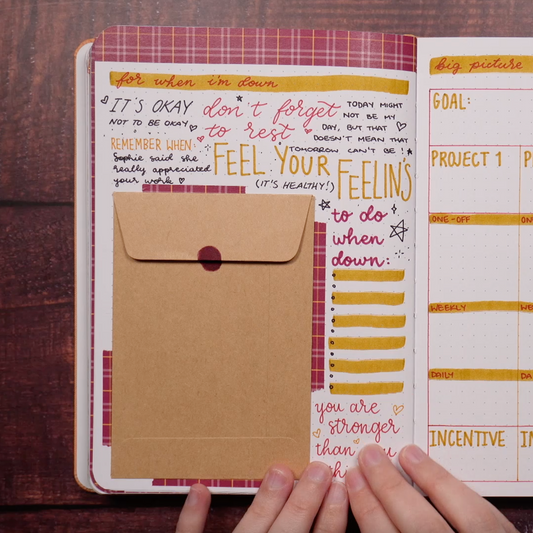 for when i'm down
IT'S OKAY
NOT TO BE OKAY
don't forget
to rest
TODAY MIGHT
NOT BE MY
DAY, BUT THAT
DOESN'T MEAN THAT
TOMORROW CAN'T BE!
REMEMBER WHEN:
Sophie said she
really appreciated
your work
FEEL YOUR
FEELIN'S
(IT'S HEALTHY!)
to do
when
down:
you are
stronger
than
big picture
GOAL:
PROJECT 1
ONE-OFF
WEEKLY
DAILY
INCENTIVE